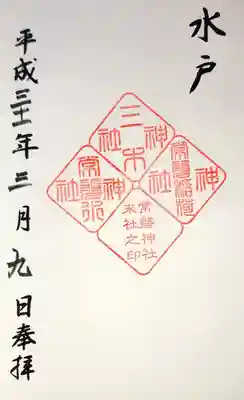 水戸
三木神社
常磐稲荷神社
常磐神社
末社之印
平成三十一年三月九日奉拝